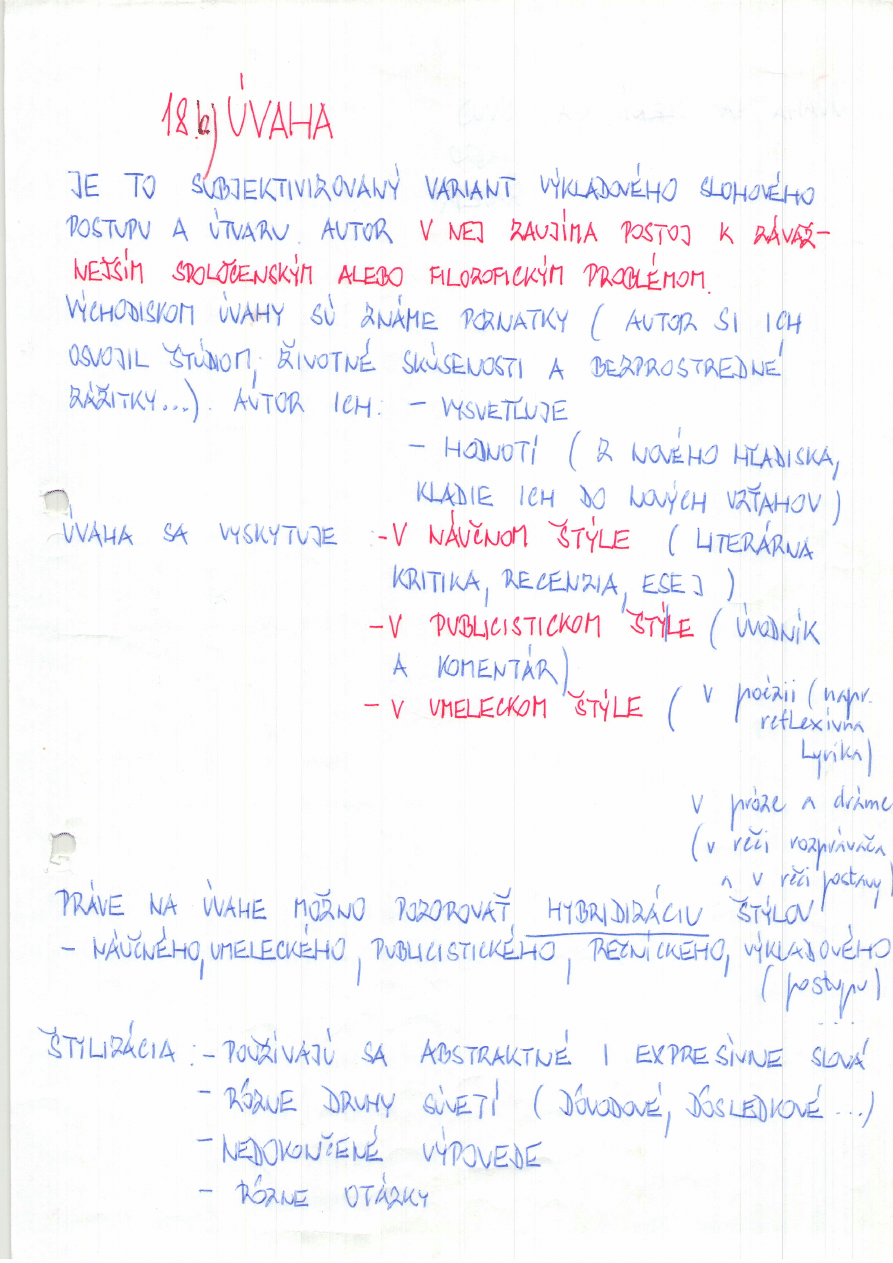 18 b) ÚVAHA
JE TO SUBJEKTIVIZOVANÝ VARIANT VÝKLADOVÉHO SLOHOVÉHO
POSTUPU A ÚTVARU. AUTOR V NEJ ZAUJÍMA POSTOJ K ZÁVAŽ-
NEJŠÍM SPOLOČENSKÝM ALEBO FILOZOFICKÝM PROBLÉMOM.
VÝCHODISKOM ÚVAHY SÚ ZNÁME POZNATKY ( AUTOR SI ICH
OSVOJIL ŠTÚDIOM, ŽIVOTNÉ SKÚSENOSTI A BEZPROSTREDNÉ
ZÁŽITKY...). AUTOR ICH: - VYSVETĽUJE
- HODNOTÍ ( Z NOVÉHO HĽADISKA,
KLADIE ICH DO NOVÝCH VZŤAHOV )
ÚVAHA SA VYSKYTUJE - V NÁUČNOM ŠTÝLE ( LITERÁRNA
KRITIKA, RECENZIA, ESEJ )
- V PUBLICISTICKOM ŠTÝLE ( ÚVODNÍK
A KOMENTÁR)
- V UMELECKOM ŠTÝLE ( v poézii (napr.
reflexívna
Lyrika)
v próze a dráme
(v reči rozprávača
a v reči postavy)
PRÁVE NA ÚVAHE MOŽNO POZOROVAŤ HYBRIDIZÁCIU ŠTÝLOV
- NÁUČNÉHO, UMELECKÉHO, PUBLICISTICKÉHO, REČNÍCKEHO, VÝKLADOVÉHO
(postupu)
ŠTYLIZÁCIA: - POUŽÍVAJÚ SA ABSTRAKTNÉ I EXPRESÍVNE SLOVÁ
- RÔZNE DRUHY SÚVETÍ ( DÔVODOVÉ, DÔSLEDKOVÉ ...)
- NEDOKONČENÉ VÝPOVEDE
- RÔZNE OTÁZKY